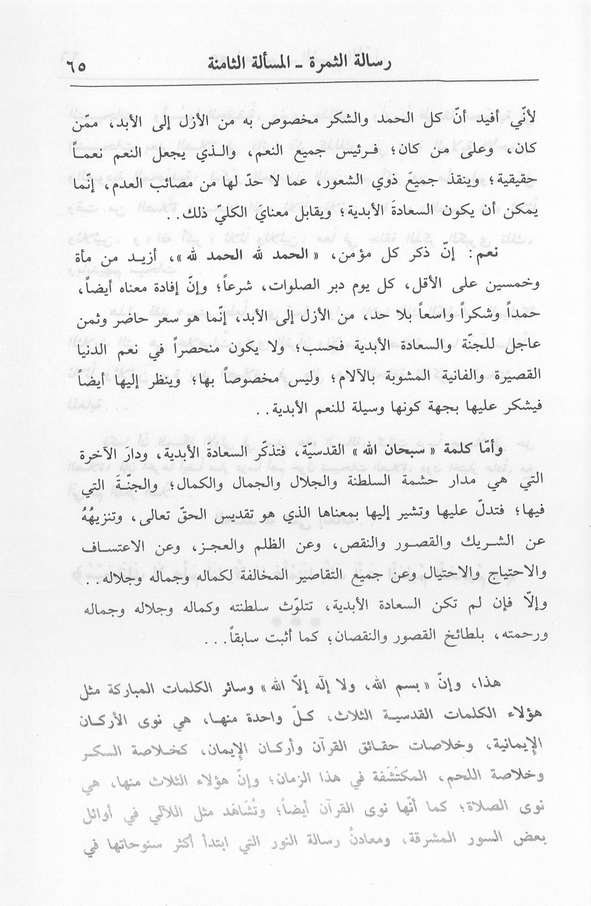 رسالة الثمرة ـ المسألة الثامنة ٦٥
لأنّي أفيد أنّ كل الحمد والشكر مخصوص به من الأزل إلى الأبد، ممّن
كان، وعلى من كان؛ فرئيس جميع النعم، والذي يجعل النعم نعمـاً
حقيقية؛ وينقذ جميعَ ذوي الشعور، عما لا حدّ لها من مصائب العدم، إنّما
يمكن أن يكون السعادةَ الأبدية؛ ويقابل معنايَ الكليّ ذلك. .
نعم: إنّ ذكر كل مؤمن، «الحمد لله الحمد لله»، أزيـد من مأة
وخمسين على الأقل، كل يوم دبر الصلوات، شرعاً؛ وإنّ إفادة معناه أيضاً،
حمداً وشكراً واسعاً بلا حد، من الأزل إلى الأبد، إنّما هو سعر حاضر وثمن
عاجل للجنّة والسعادة الأبدية فحسب؛ ولا يكون منحصراً في نعم الدنيا
القصيرة والفانية المشوبة بالآلام؛ وليس مخصوصاً بها؛ وينظر إليها أيضاً
فيشكر عليها بجهة كونها وسيلة للنعم الأبدية. .
وأمّا كلمة «سبحان الله» القدسيّة، فتذكّر السعادةَ الأبدية، ودارَ الآخرة
التي هي مدار حشمة السلطنة والجلال والجمال والكمال؛ والجنّـةَ التي
فيها؛ فتدلّ عليها وتشير إليها بمعناها الذي هو تقديس الحقّ تعالى، وتنزيهُهُ
عن الشـريك والقصـور والنقص، وعن الظلم والعجـز، وعن الاعتسـاف
والاحتياج والاحتيال وعن جميع التقاصير المخالفة لكماله وجماله وجلاله. . .
وإلّا فإن لم تكن السعادة الأبدية، تتلوّث سلطنته وكماله وجلاله وجماله
ورحمته، بلطائخ القصور والنقصان؛ كما أثبت سابقاً. . .
هذا، وإنّ «بسم الله، ولا إلٰه إلّا الله» وسائر الكلمات المباركة مثل
هؤلاء الكلمات القدسيـة الثلاث، كـلّ واحدة منهـا، هي نوى الأركـان
الإيمانية، وخلاصات حقائق القرآن وأركان الإيمان، كخلاصة السكر
وخلاصة اللحم، المكتَشَفة في هذا الزمان؛ وإنّ هؤلاء الثلاث منها، هي
نوى الصلاة؛ كما أنّها نوى القرآن أيضاً؛ وتُشَاهَد مثل اللآلي في أوائل
بعض السور المشرقة، ومعادنُ رسالة النور التي ابتدأ أكثر سنوحاتها في